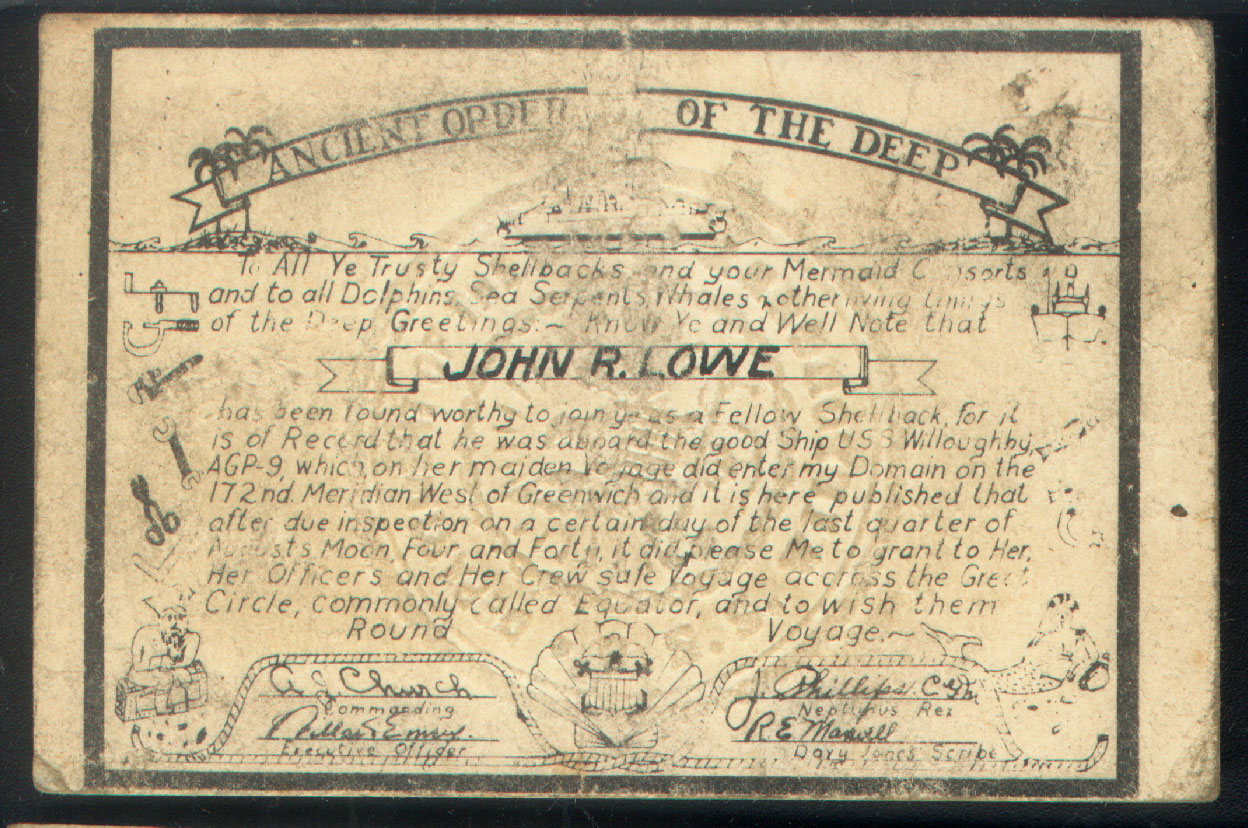 ANCIENT ORDER OF THE DEEP
To All Ye Trusty Shellbacks and your Mermaid Consorts
and to all Dolphins, Sea Serpents, Whales & other living things
of the Deep, Greetings:~ Know Ye and Well Note that
JOHN R. LOWE
has been found worthy to join ye as a Fellow Shellback, for it
is of Record that he was aboard the good Ship USS Willoughby,
AGP-9, which on her maiden Voyage did enter my Domain on the
172nd. Meridian West of Greenwich and it is here published that
after due inspection on a certain day of the last quarter of
August's Moon, Four and Forty, it did please Me to grant to Her,
Her Officers and Her Crew safe Voyage accross the Great
Circle, commonly called Equator, and to wish them
Round Voyage.~
A J Church J. Phillips
Commanding Neptunus Rex
R E Maxwell
Executive Officer Davy Jones Scribe